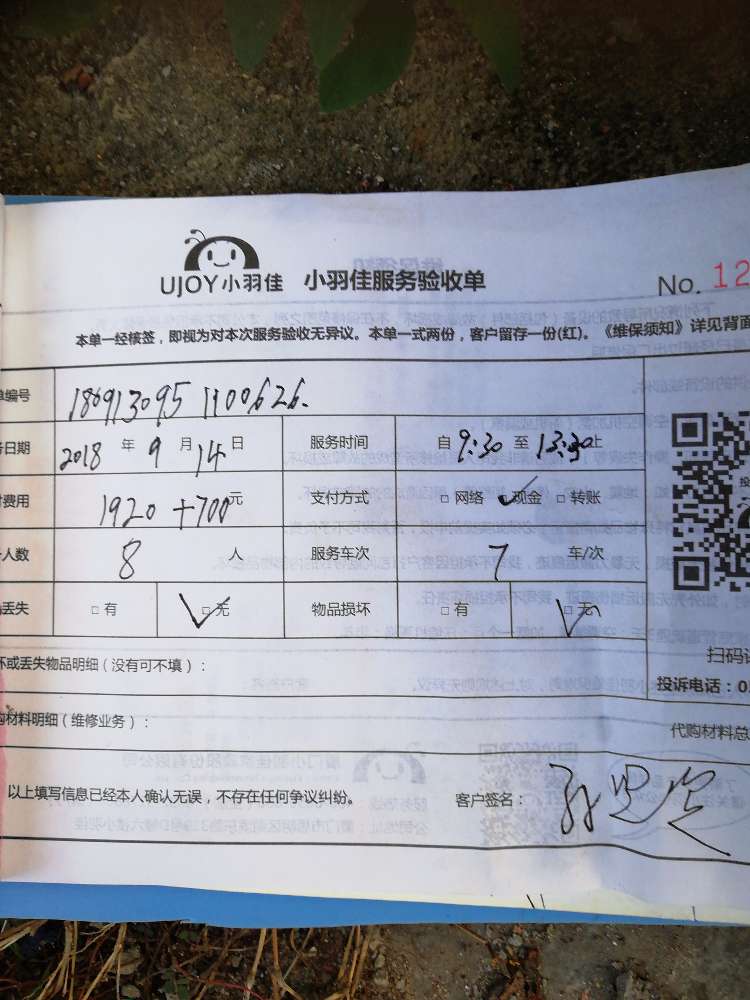 UJOY小羽佳 小羽佳服务验收单
No. 12
本单一经核签，即视为对本次服务验收无异议。本单一式两份，客户留存一份(红)。《维保须知》详见背面
单编号 186913095 1100626.
务日期 2018 年 9 月 14 日 服务时间 自 9:30 至 13:30 止
付费用 1920+700元 支付方式 □网络 ☑现金 □转账
人数 8 人 服务车次 7 车/次
丢失 □有 ☑无 物品损坏 □有 ☑无
坏或丢失物品明细（没有可不填）：
扫码
投诉电话：0
购材料明细（维修业务）：
代购材料总
以上填写信息已经本人确认无误，不存在任何争议纠纷。 客户签名：